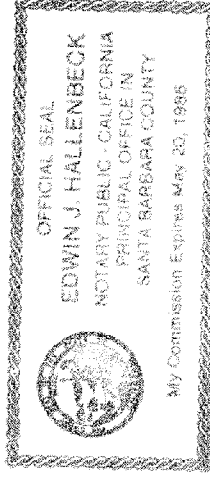 OFFICIAL SEAL
EDWIN J. HALLENBECK
NOTARY PUBLIC - CALIFORNIA
PRINCIPAL OFFICE IN
SANTA BARBARA COUNTY
My Commission Expires May 20, 1986